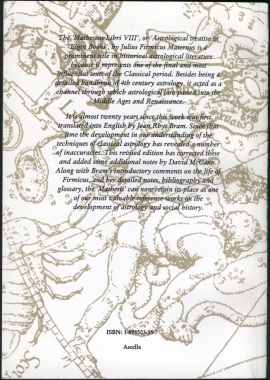 The 'Matheseos Libri VIII', or 'Astrological treatise in
Eight Books', by Julius Firmicus Maternus is a
prominent title in historical astrological literature
because it represents one of the final and most
influential texts of the Classical period. Besides being a
detailed handbook of 4th century astrology, it acted as a
channel through which astrological lore passed into the
Middle Ages and Renaissance.
It is almost twenty years since this work was first
translated into English by Jean Rhys Bram. Since that
time the development in our understanding of the
techniques of classical astrology has revealed a number
of inaccuracies. This revised edition has corrected these
and added some additional notes by David McCann.
Along with Bram's introductory comments on the life of
Firmicus, and her detailed notes, bibliography and
glossary, the 'Mathesis' can now retain its place as one
of our most valuable reference works on the
development of astrology and social history.
ISBN:
Ascella